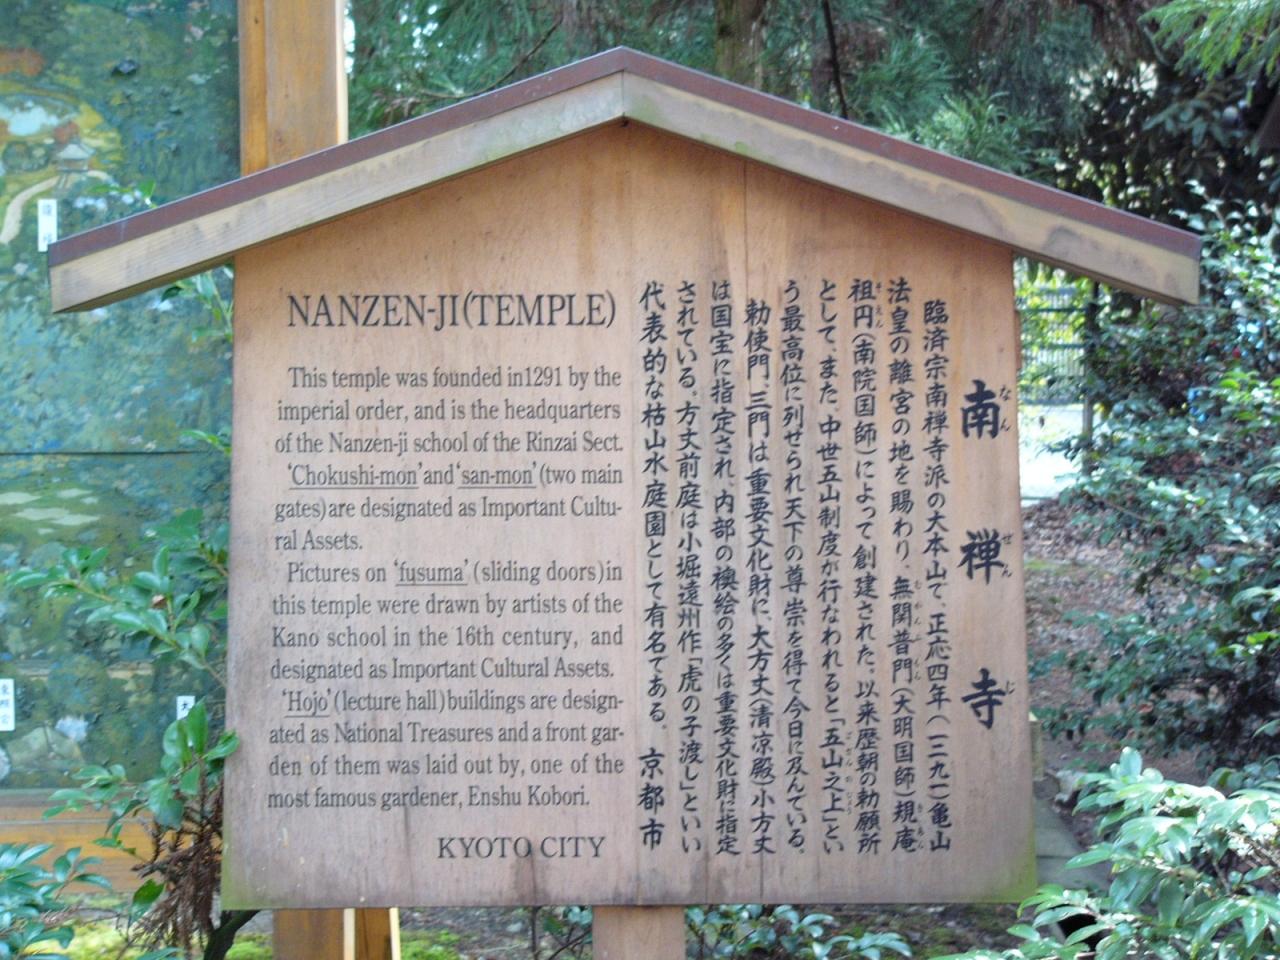 NANZEN-JI(TEMPLE)
This temple was founded in1291 by the
imperial order, and is the headquarters
of the Nanzen-ji school of the Rinzai Sect.
'Chokushi-mon'and'san-mon'(two main
gates)are designated as Important Cultu-
ral Assets.
Pictures on 'fusuma'(sliding doors)in
this temple were drawn by artists of the
Kano school in the 16th century, and
designated as Important Cultural Assets.
'Hojo'(lecture hall)buildings are design-
ated as National Treasures and a front gar-
den of them was laid out by, one of the
most famous gardener, Enshu Kobori.
KYOTO CITY
南禅寺
なんぜんじ
臨済宗南禅寺派の大本山で、正応四年(一二九一)亀山
法皇の離宮の地を賜わり、無関普門(大明国師)規庵
祖円(南院国師)によって創建された。以来歴朝の勅願所
として、また、中世五山制度が行なわれると「五山之上」とい
う最高位に列せられ天下の尊崇を得て今日に及んでいる。
勅使門、三門は重要文化財に、大方丈(清凉殿)小方丈
は国宝に指定され、内部の襖絵の多くは重要文化財に指定
されている。方丈前庭は小堀遠州作「虎の子渡し」といい
代表的な枯山水庭園として有名である。 京都市